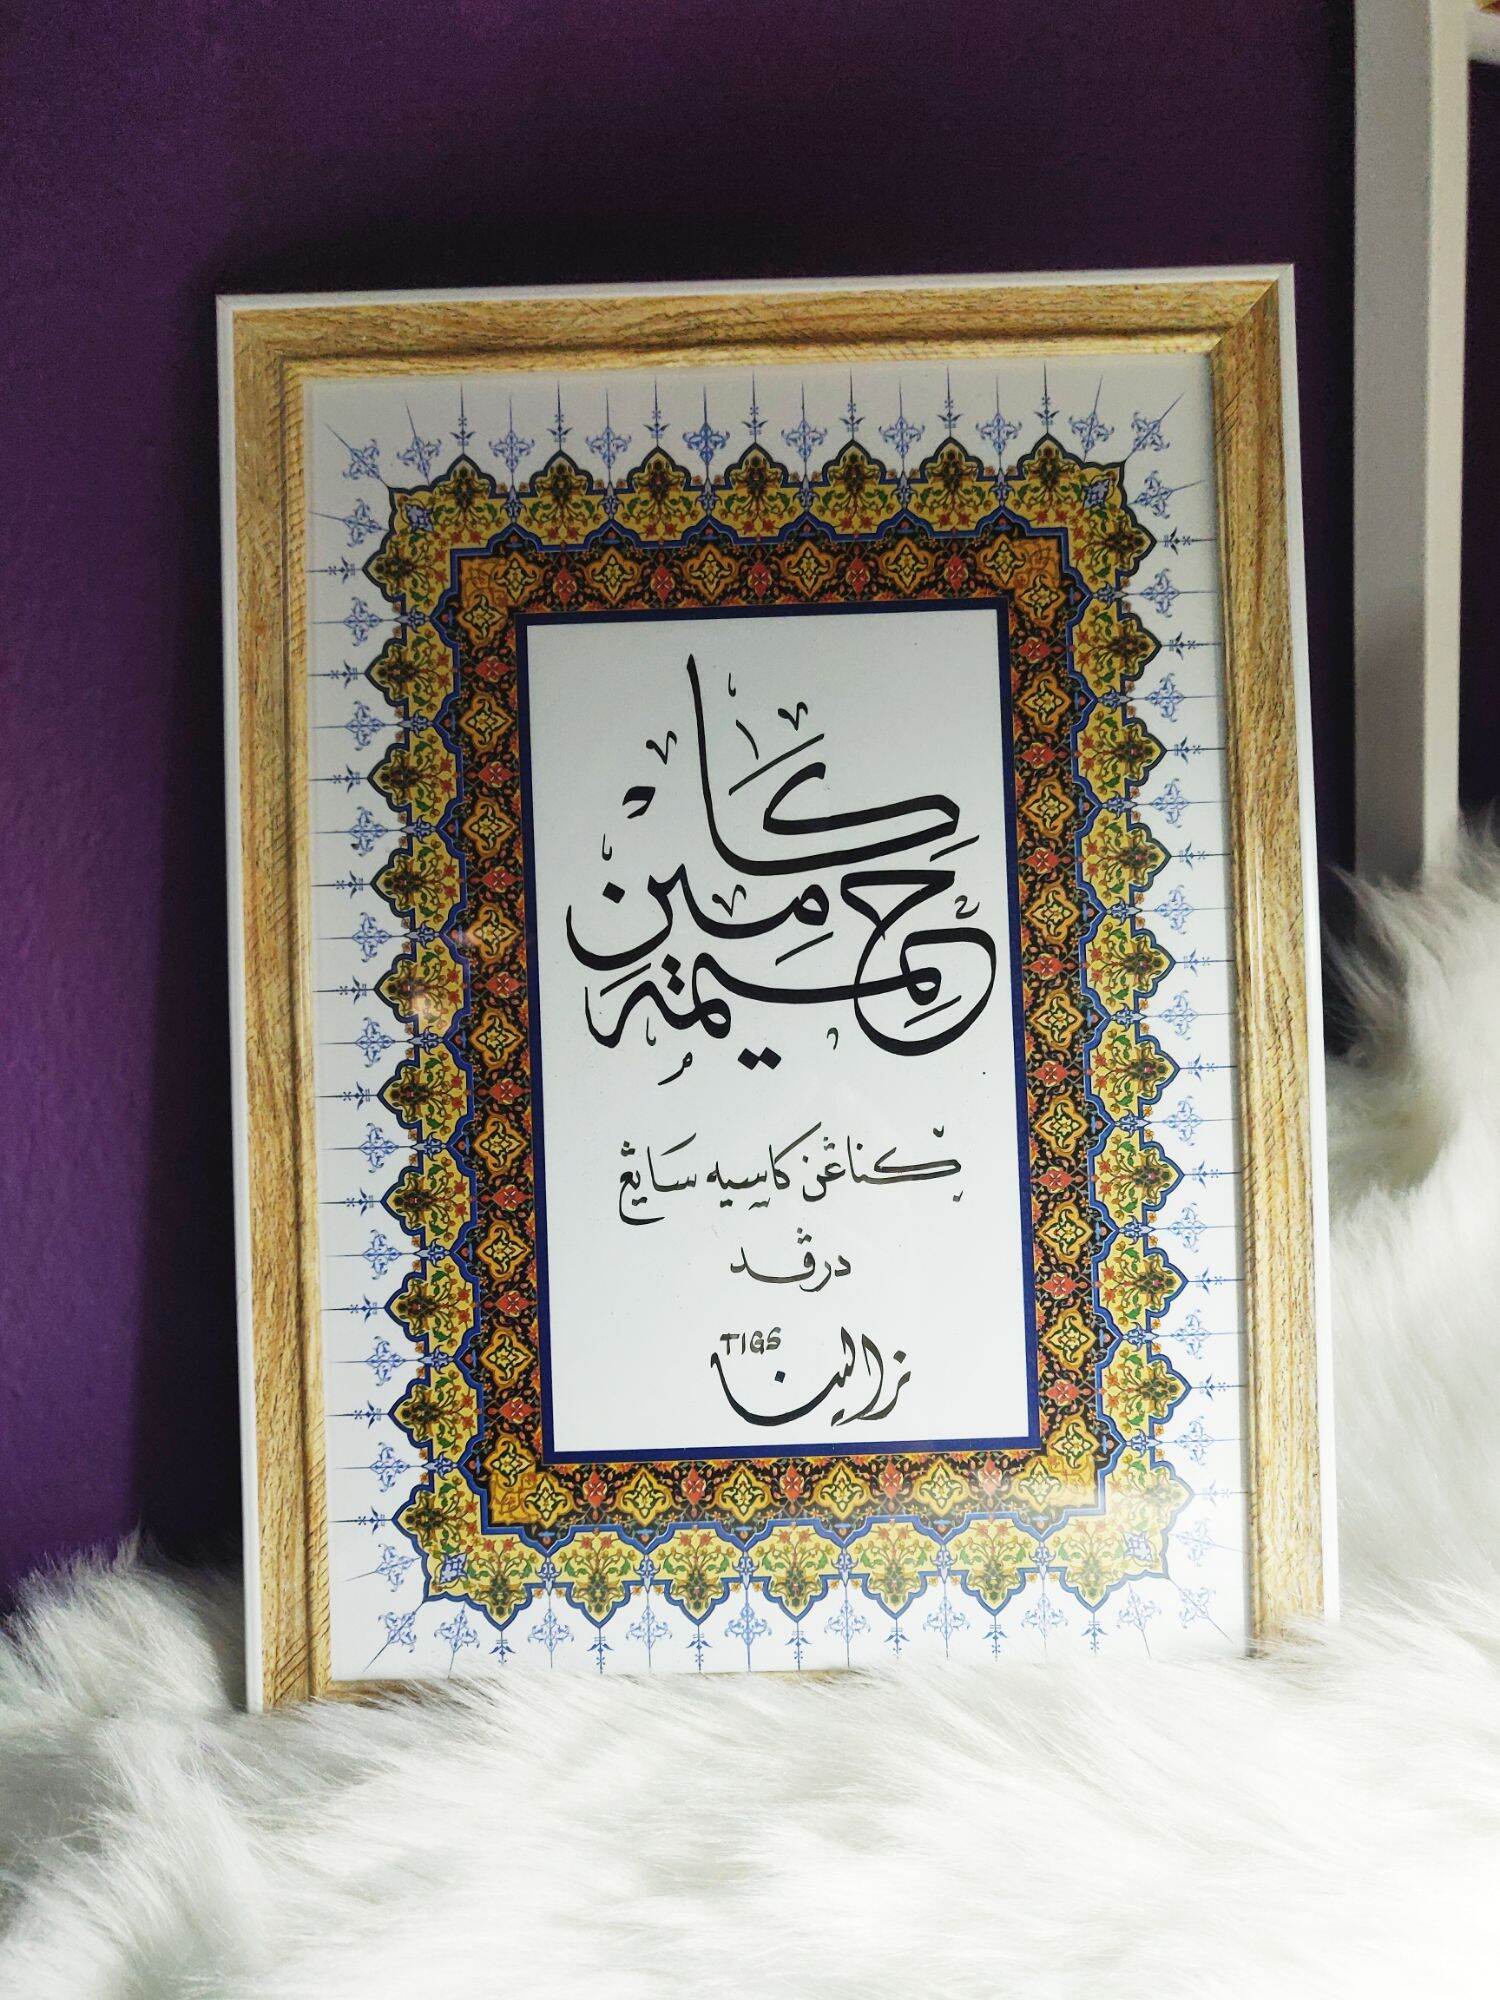 كامين
حميمة
كناڠن كاسيه سايڠ
درڤد
TIGS
زالينا